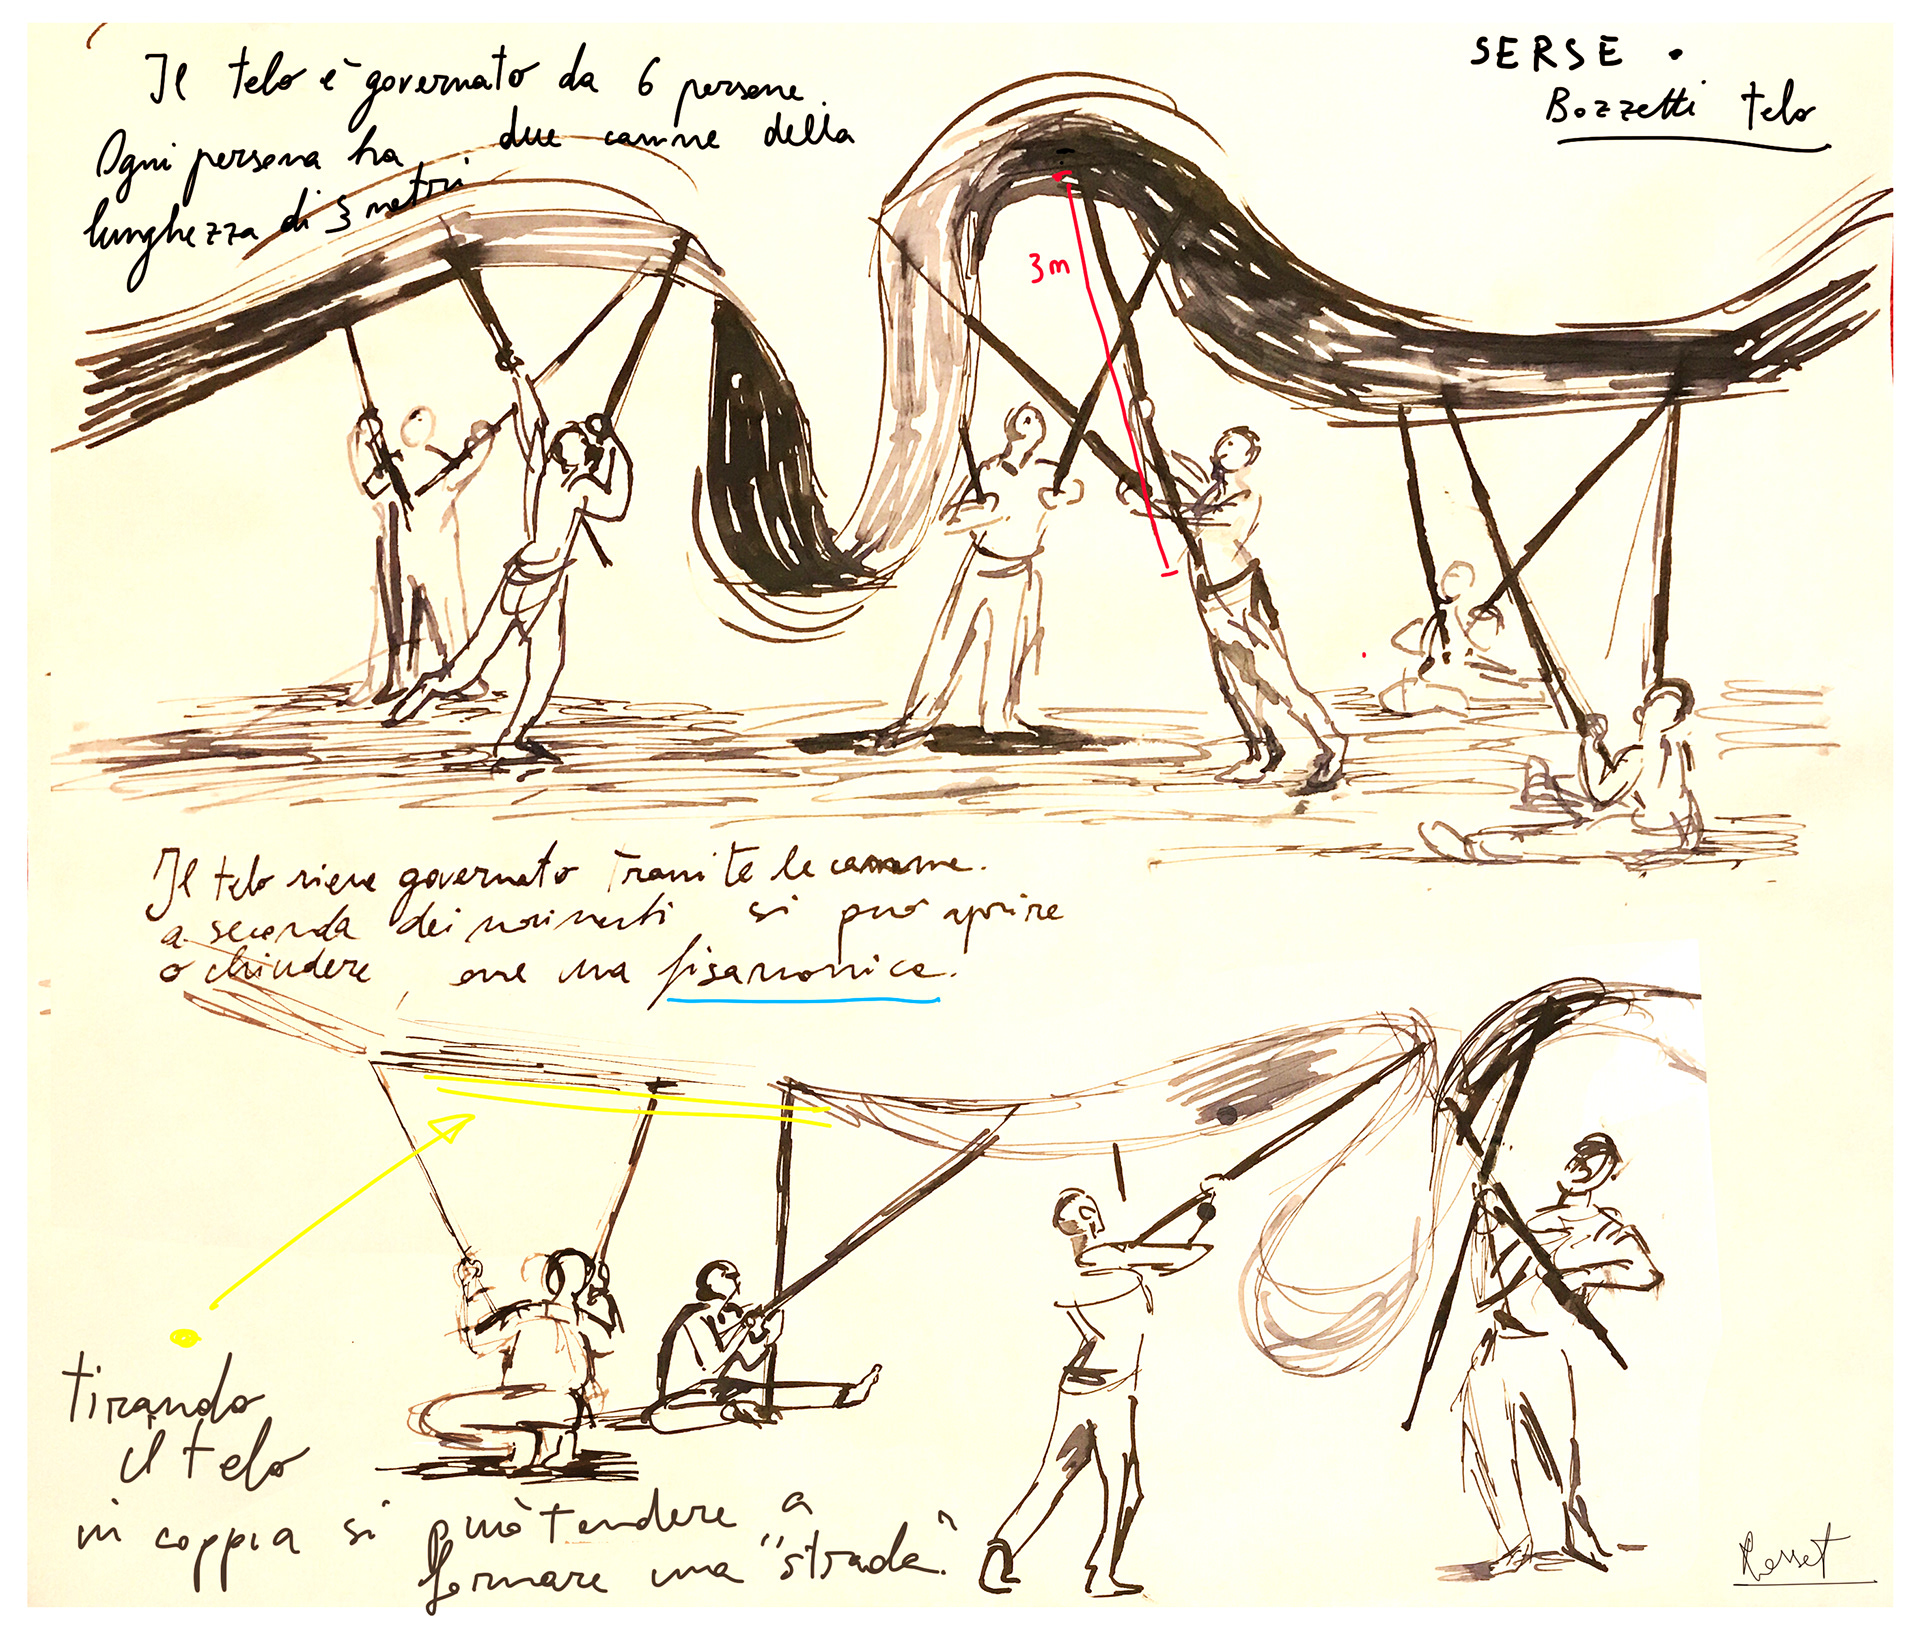 SERSE .
Bozzetti telo
Il telo è governato da 6 persone.
Ogni persona ha due canne della
lunghezza di 3 metri.
3m
Il telo viene governato tramite le canne.
a seconda dei movimenti si può aprire
o chiudere come una fisarmonica.
tirando
il telo
in coppia si può tendere a
formare una "strada".